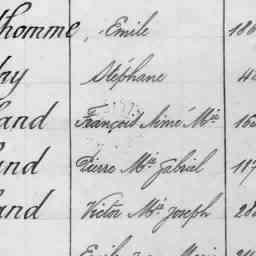 homme Emile 186
ay Stéphane 4
land François Aimé Mie 16
and Pierre Mie Gabriel 187
land Victor Mie Joseph 28